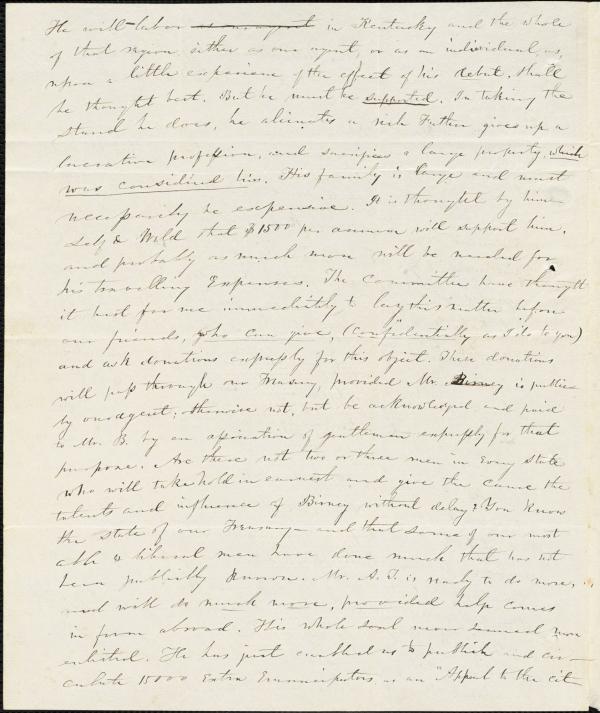 He will labor as an agent in Kentucky and the whole
of that region either as our agent, or as an individual, as,
upon a little experience of the effect of his debut, shall
be thought best. But he must be supported. In taking the
stand he does, he alienates a rich Father gives up a
lucrative profession, and sacrifices a large property, which
was considered his. His family is large and must
necessarily be expensive. It is thought by him-
self & Weld that $1500 per annum will support him,
and probably as much more will be needed for
his travelling Expenses. The Committee have thought
it best for me immediately to lay this matter before
our friends, who can give, (confidentially as I do to you)
and ask donations expressly for this object. These donations
will pass through our Treasury, provided Mr. Birney is public-
ly our agent; otherwise not, but be acknowledged and paid
to Mr. B. by an association of gentlemen expressly for that
purpose. Are there not two or three men in Every State
who will take hold in earnest and give the cause the
talents and influence of Birney without delay? You know
the state of our Treasury - and that some of our most
able & liberal men have done much that has not
been publickly known. Mr. A. T. is ready to do more,
and will do much more, provided help comes
in from abroad. His whole soul never seemed more
enlisted. He has just enabled us to publish and cir-
culate 15000 Extra Emancipators, as an "Appeal to the cit-